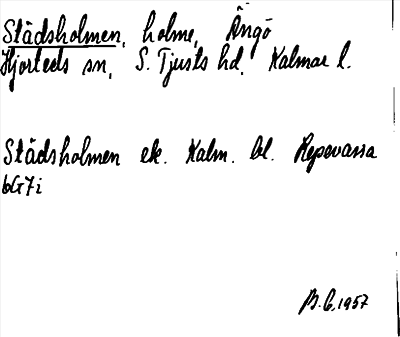 Städsholmen, holme, Ängö
Hjorteds sn, S. Tjusts hd. Kalmar l.
Städsholmen ek. Kalm. bl.
6G7i
B.G. 1957